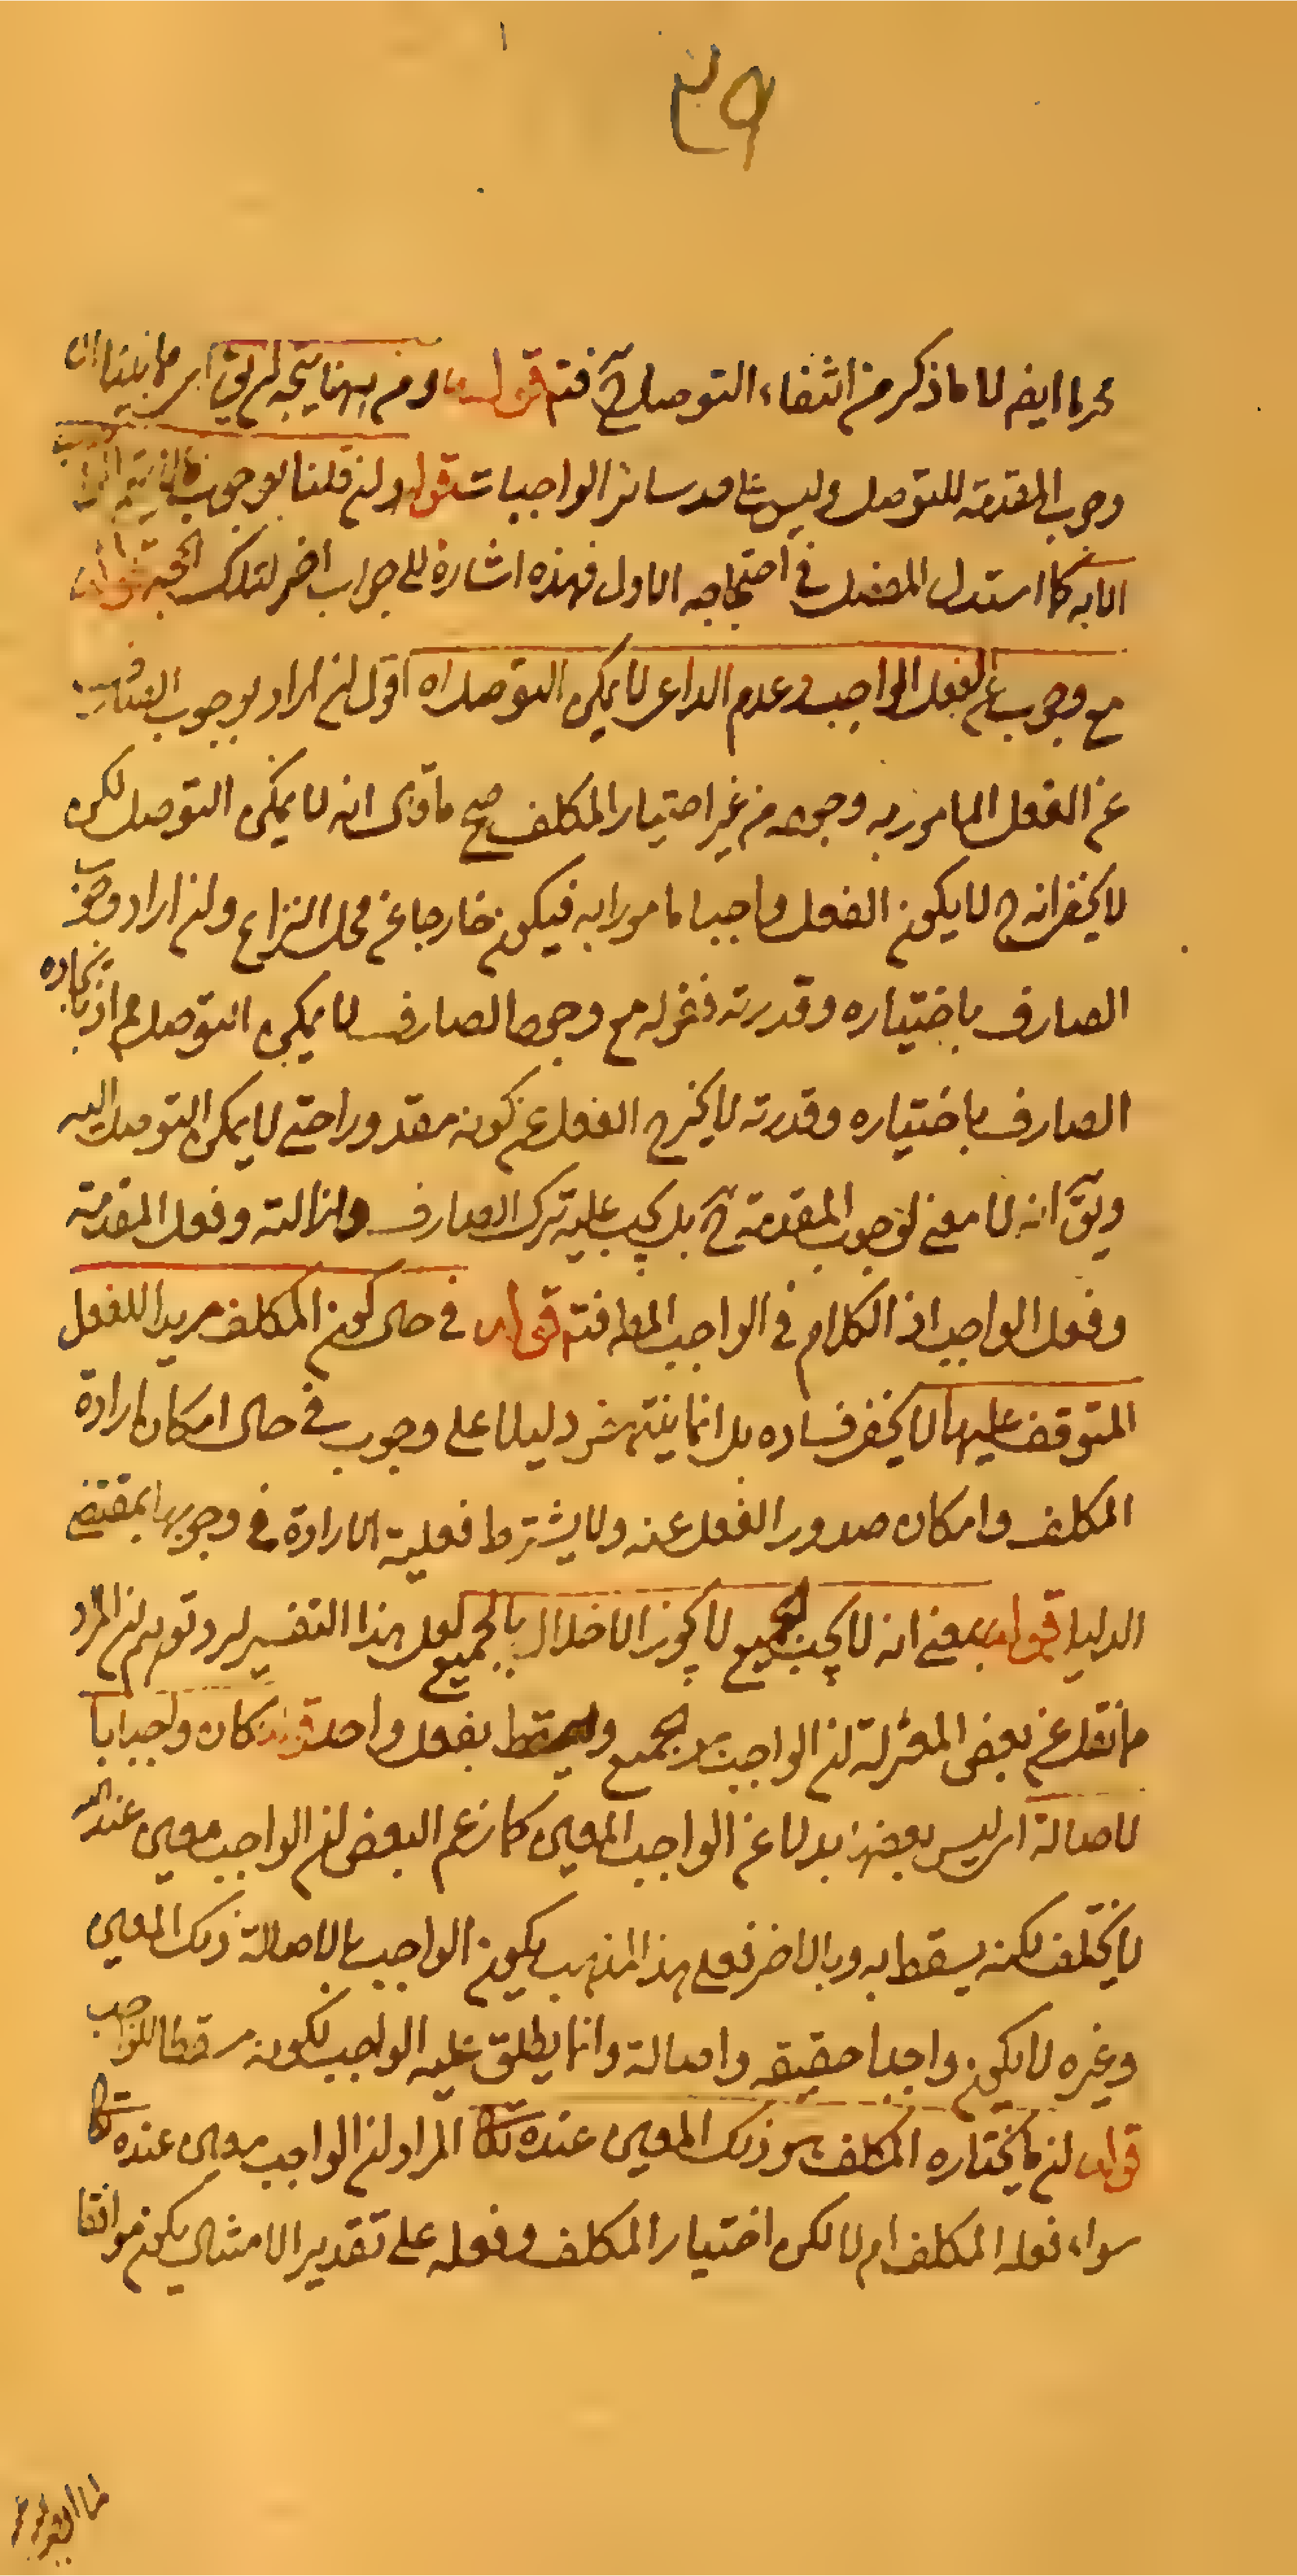 محرما ايضا لا ما ذكر من انتفاء التوصل ح فتم قوله ومن ههنا يتجه ان يق اى مما بينا ان
وجوب المقدمة للتوصل وليس على حد سائر الواجبات قوله وان قلنا بوجوب ما لا يتم الواجب
الا به كما استدل المفصل في احتجاجه الاول فهذه اشارة الى جواب اخر لتلك الحجة قوله ان
مع وجود الصارف عن الفعل الواجب وعدم الداعى لا يمكن التوصل اه اقول ان اراد بوجود الصارف
عن الفعل المامور به وجوده من غير اختيار المكلف صح ما قوى انه لا يمكن التوصل لكن
لا يخفى انه ح لا يكون الفعل واجبا مامورا به فيكون خارجا عن محل النزاع وان اراد وجود
الصارف باختياره وقدرته فقوله مع وجود الصارف لا يمكن التوصل مم اذ ايجاده
الصارف باختياره وقدرته لا يخرج الفعل عن كونه مقدورا حتى لا يمكن التوصل اليه
ويق انه لا معنى لوجوب المقدمة ح بل يجب عليه ترك الصارف وازالته وفعل المقدمة
وفعل الواجب اذ الكلام في الواجب المط فتم قوله في حال كون المكلف مريدا للفعل
المتوقف عليها لا يخفى فساده بل انما ينتهض دليلا على وجوب في حال امكان ارادة
المكلف وامكان صدور الفعل عنه ولا يشترط فعلية الارادة في وجوبها بمقتضى
الدليل قوله بمعنى انه لا يجب الجميع لا يجوز الاخلال بالجميع لعل هذا التفسير لرد توهم ان المراد
ما نقل عن بعض المعتزلة ان الواجب الجميع ويسقط بفعل واحد قوله كان واجبا با
لاصالة اى ليس بعضها بدلا عن الواجب المعين كما زعم البعض ان الواجب معين عند الله
لا يختلف لكنه يسقط به وبالاخر فعلى هذا المذهب يكون الواجب بالاصالة ذلك المعين
وغيره لا يكون واجبا حقيقه واصالة وانما يطلق عليه الواجب لكونه مسقطا للواجب
قوله ان ما يختاره المكلف هو ذلك المعين عنده تعا المراد ان الواجب معين عنده تعا
سواء فعله المكلف ام لا لكن اختيار المكلف وفعله على تقدير الامتثال يكون موافقا